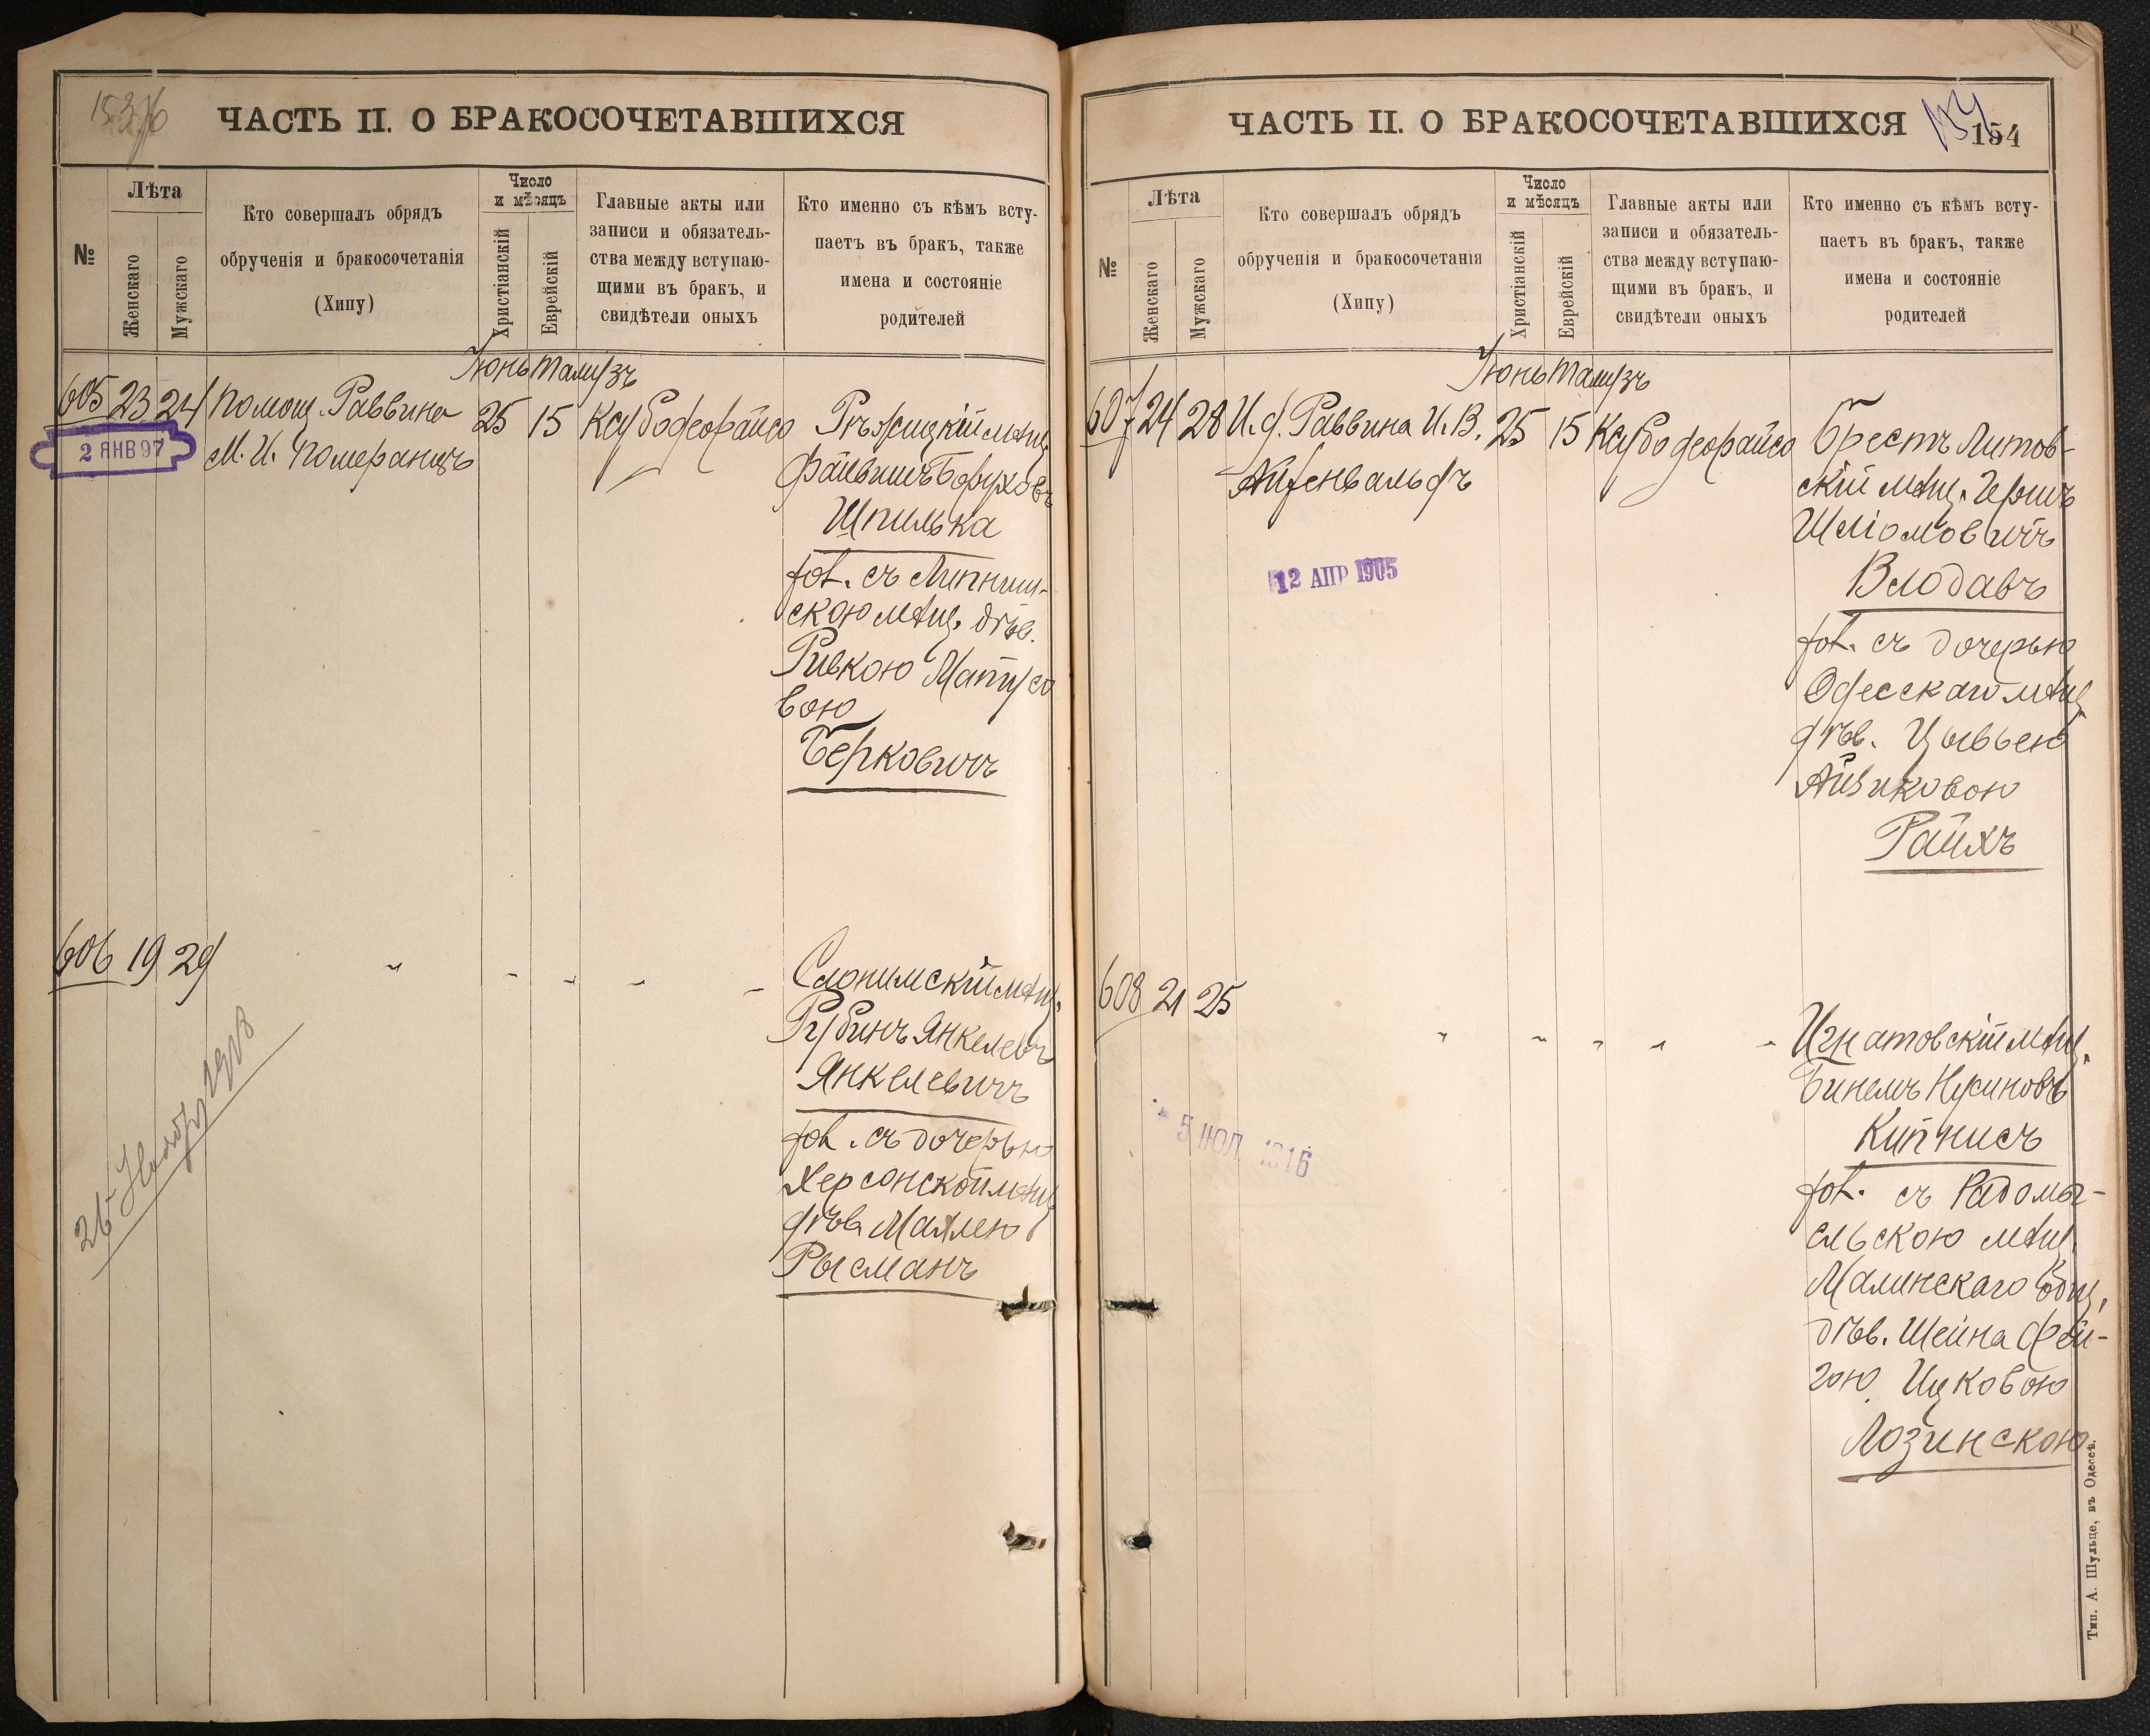 ЧАСТЬ II. О БРАКОСОЧЕТАВШИХСЯ
№
Лѣта
Женскаго
Мужскаго
Кто совершалъ обрядъ
обрученія и бракосочетанія
(Хипу)
Число
и мѣсяцъ
Христіанскій
Еврейскій
Главные акты или
записи и обязатель-
ства между вступаю-
щими въ бракъ, и
свидѣтели оныхъ
Кто именно съ кѣмъ всту-
паетъ въ бракъ, также
имена и состояніе
родителей
Іюнь Тамузъ
605 23 24 Помощ. Раввина 25 15
2 ЯНВ 97
М. И. Померанцъ
Рѣжицкій мѣщ.
Файвишъ Боруховъ
Шпилька
хол. съ Липниш-
скою мѣщ. дѣв.
Ривкою Матусо
вою
Берковичъ
606 19 29 " " " " "
Слонимскій мѣщ.
Рубинъ Янкелевъ
Янкелевичъ
хол. съ дочерью
Херсонской мѣщ.
дѣв. Малею
Рысманъ
ЧАСТЬ II. О БРАКОСОЧЕТАВШИХСЯ
154
154
№
Лѣта
Женскаго
Мужскаго
Кто совершалъ обрядъ
обрученія и бракосочетанія
(Хипу)
Число
и мѣсяцъ
Христіанскій
Еврейскій
Главные акты или
записи и обязатель-
ства между вступаю-
щими въ бракъ, и
свидѣтели оныхъ
Кто именно съ кѣмъ всту-
паетъ въ бракъ, также
имена и состояніе
родителей
Іюнь Тамузъ
607 24 28 И. д. Раввина И. В. 25 15
Айзенвальдъ
12 АПР 1905
Брестъ Литов-
скій мѣщ. Гершъ
Шліомовичъ
Влодавъ
хол. съ дочерью
Одесскаго мѣщ.
дѣв. Цивьею
Айзиковою
Райхъ
608 21 25 " " " " "
5 ИЮЛ 1916
Игнатовскій мѣщ.
Бинемъ Нусиновъ
Кипнисъ
хол. съ Радомы-
сльскою мѣщ.
Малинскаго общ.
дѣв. Шейна Фей-
гою Ицковою
Лозинскою
Тип. А. Шульце, въ Одессѣ.